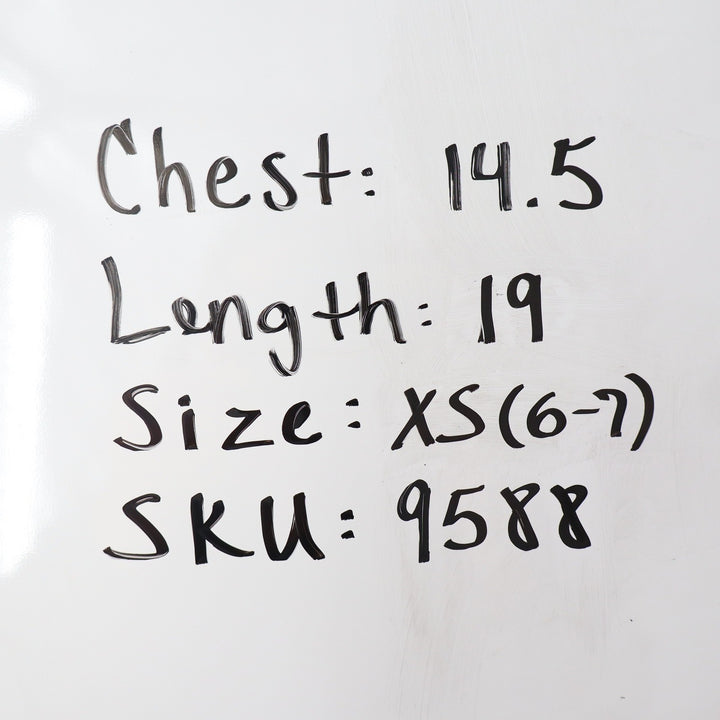 Chest: 14.5
Length: 19
Size: XS(6-7)
SKU: 9588